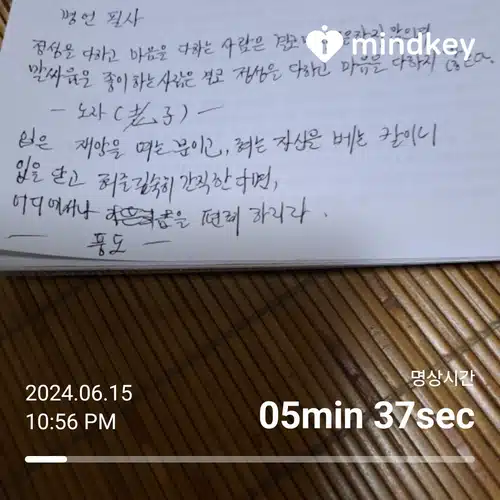 명언 필사
mindkey
정성을 다하고 마음을 다하는 사람은 결코
말싸움을 좋아하는 사람은 결코 정성을 다하고 마음을 다하지 않는다.
— 노자 (老子) —
입은 재앙을 여는 문이고, 혀는 자신을 베는 칼이니
입을 닫고 혀를 깊숙히 간직한다면,
어디에서나 을 편레 하리라.
— 풍도 —
2024.06.15
10:56 PM
명상시간
05min 37sec